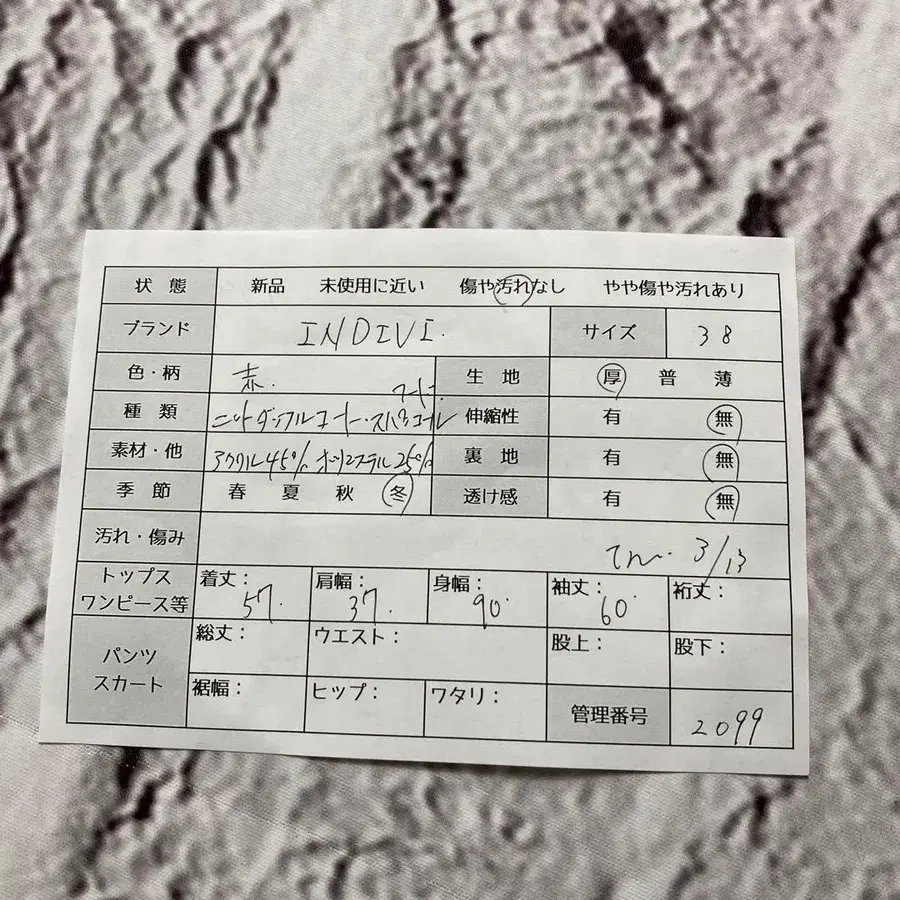 状態 新品 未使用に近い 傷や汚れなし やや傷や汚れあり
ブランド INDIVI. サイズ 38
色・柄 赤. 生地 厚 普 薄
フード
種類 ニットダッフルコート・スパンコール 伸縮性 有 無
素材・他 アクリル45% ポリエステル25% 裏地 有 無
季節 春 夏 秋 冬 透け感 有 無
汚れ・傷み 3/13
トップス ワンピース等 着丈: 57. 肩幅: 37. 身幅: 90. 袖丈: 60. 裄丈:
パンツ スカート 総丈: ウエスト: 股上: 股下:
裾幅: ヒップ: ワタリ: 管理番号 2099